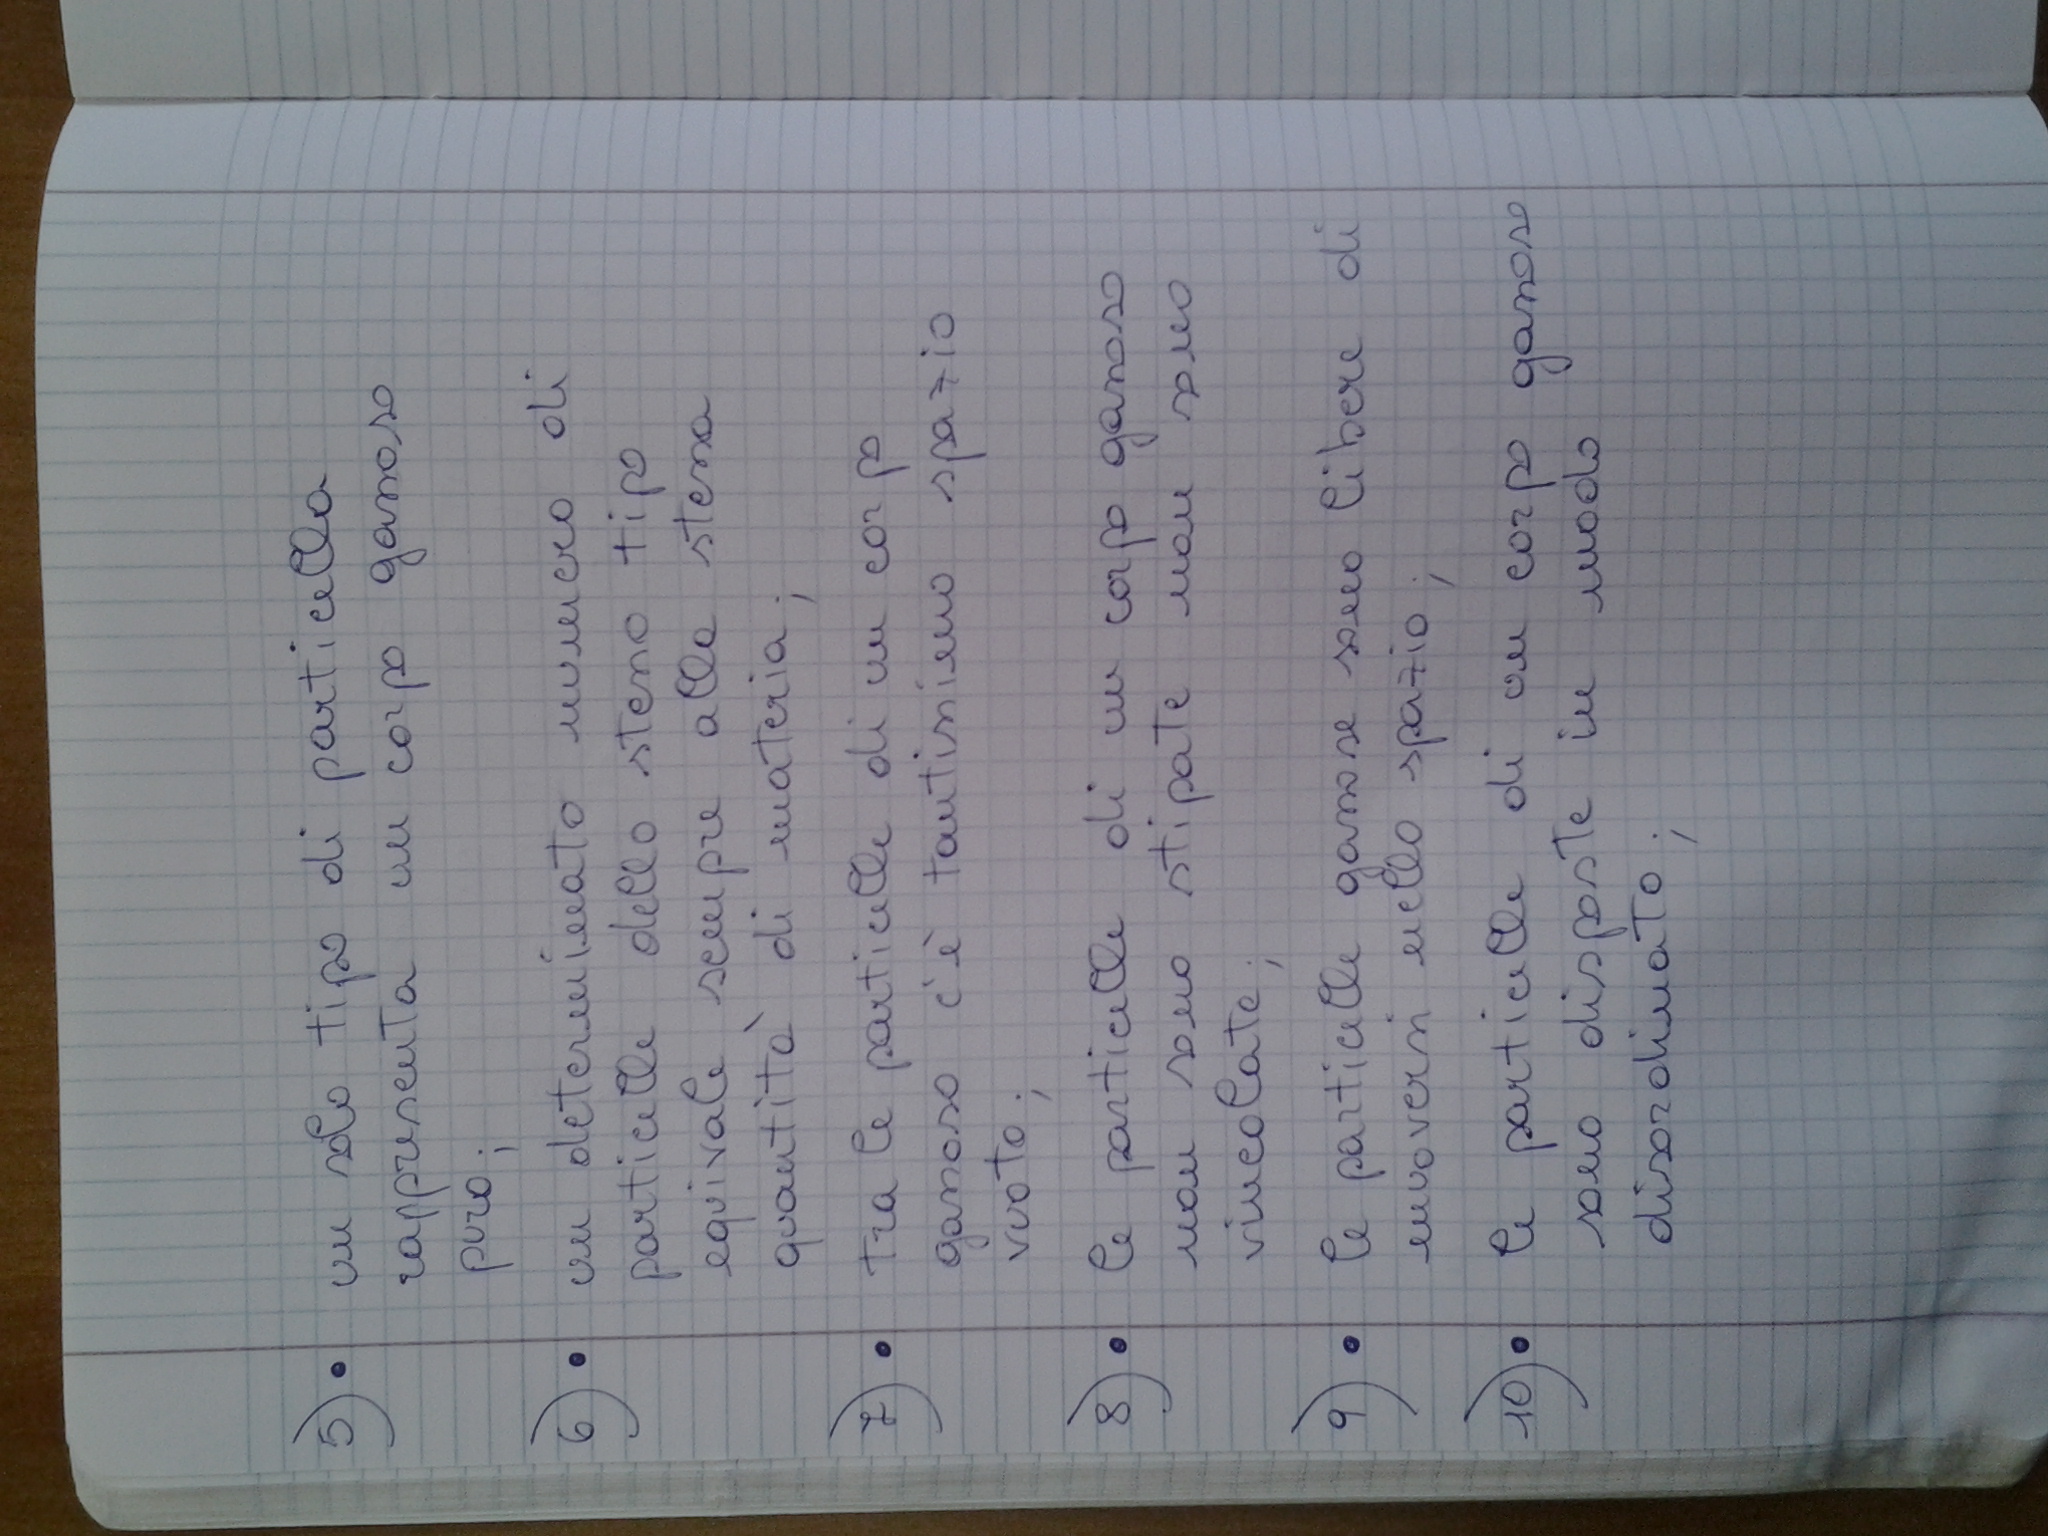 5) • un solo tipo di particella
rappresenta un corpo gassoso
puro;
6) • un determinato numero di
particelle dello stesso tipo
equivale sempre alla stessa
quantità di materia;
7) • tra le particelle di un corpo
gassoso c'è tantissimo spazio
vuoto;
8) • le particelle di un corpo gassoso
non sono stipate non sono
vincolate;
9) • le particelle gassose sono libere di
muoversi nello spazio;
10) • le particelle di un corpo gassoso
sono disposte in modo
disordinato;